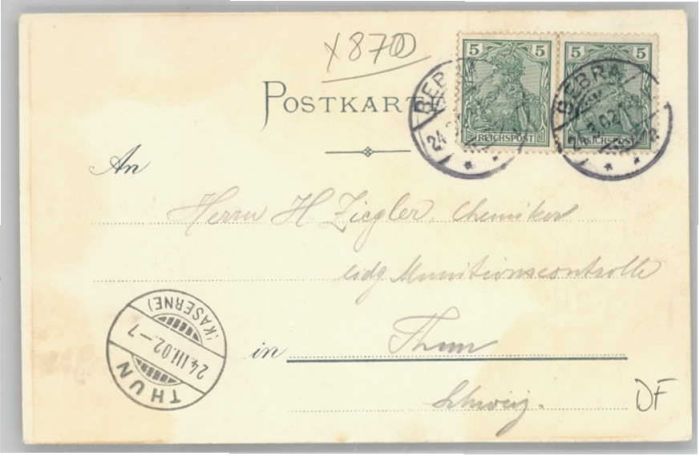 x870
5 5 5 5
REICHSPOST REICHSPOST
BEBRA
24
BEBRA
3.02
POSTKARTE
An
Herrn H Ziegler, Chemiker
eidg Munitionscontrolle
in Thun
Schweiz.
THUN
24.III.02.-7
(KASERNE)
DF